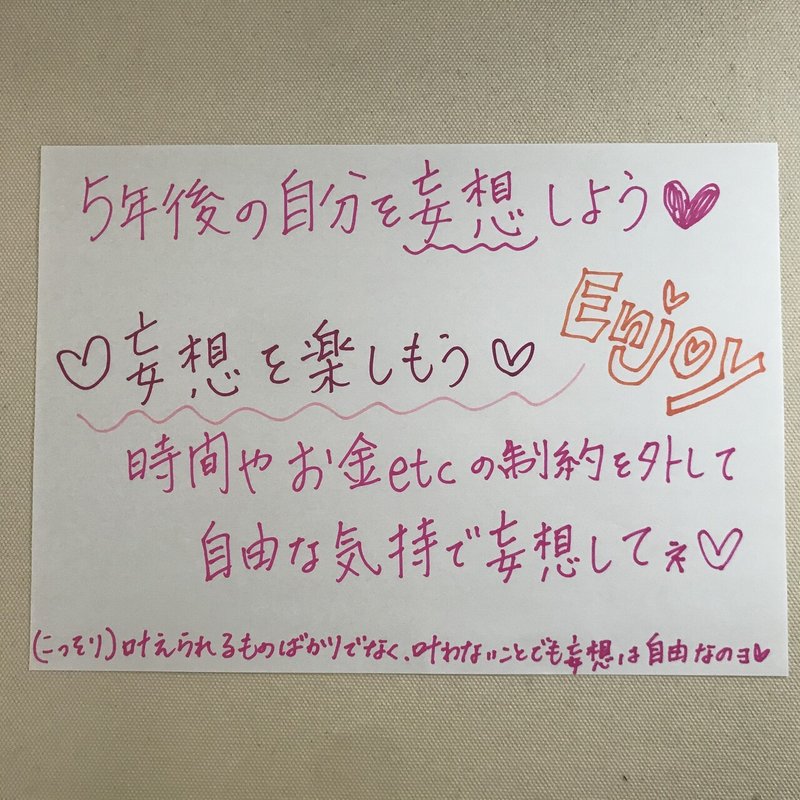 5年後の自分を妄想しよう♥
Enjoy
♡妄想を楽しもう♡
時間やお金etcの制約を外して
自由な気持で妄想してネ♡
(こっそり)叶えられるものばかりでなく、叶わないことでも妄想は自由なのヨ♥